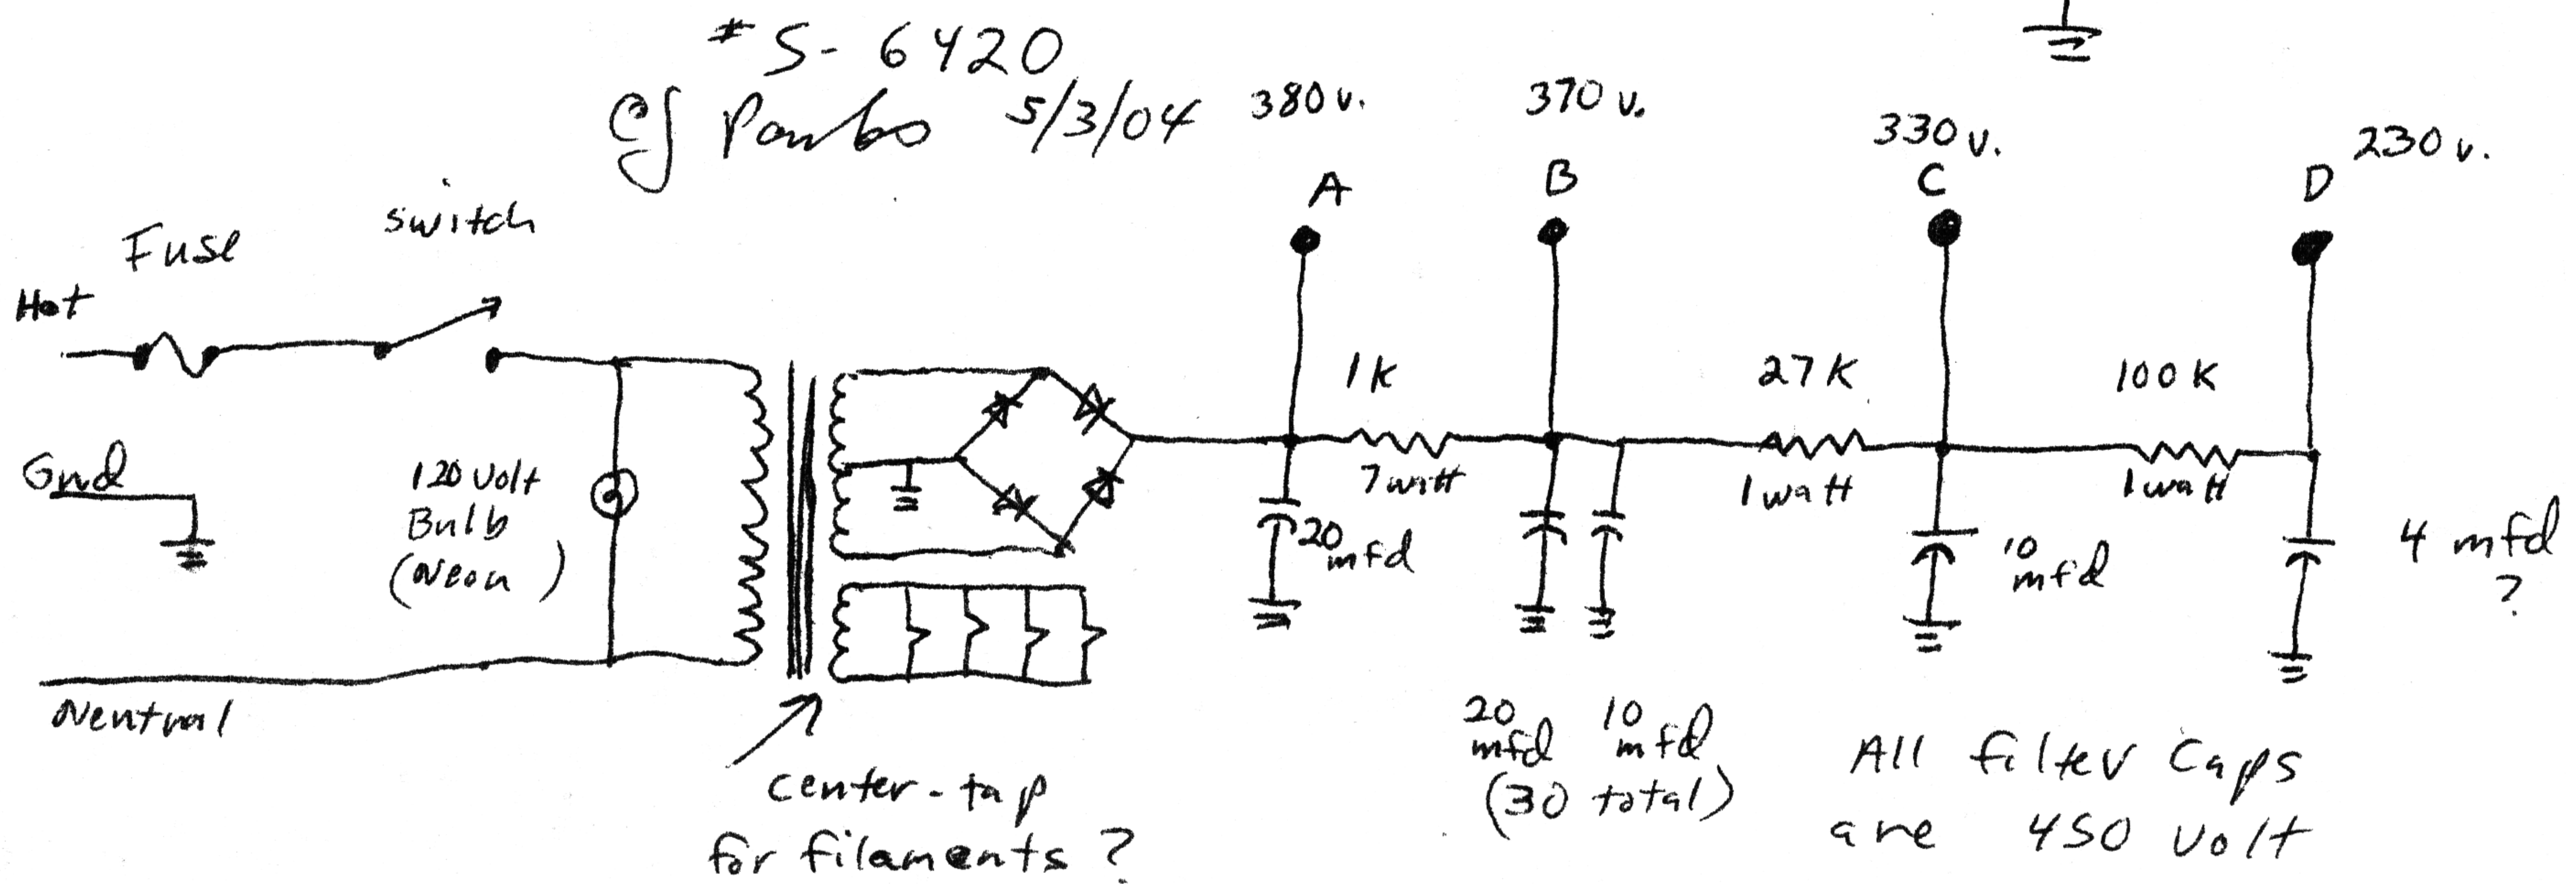 #S-6420
5/3/04
380 v.
370 v.
330 v.
230 v.
A
B
C
D
Fuse
switch
Hot
Gnd
120 volt
Bulb
(Neon)
Neutral
1K
7 watt
27K
1 watt
100K
1 watt
20
mfd
10
mfd
4 mfd
?
20
mfd
10
mfd
(30 total)
center-tap
for filaments?
All filter caps
are 450 volt